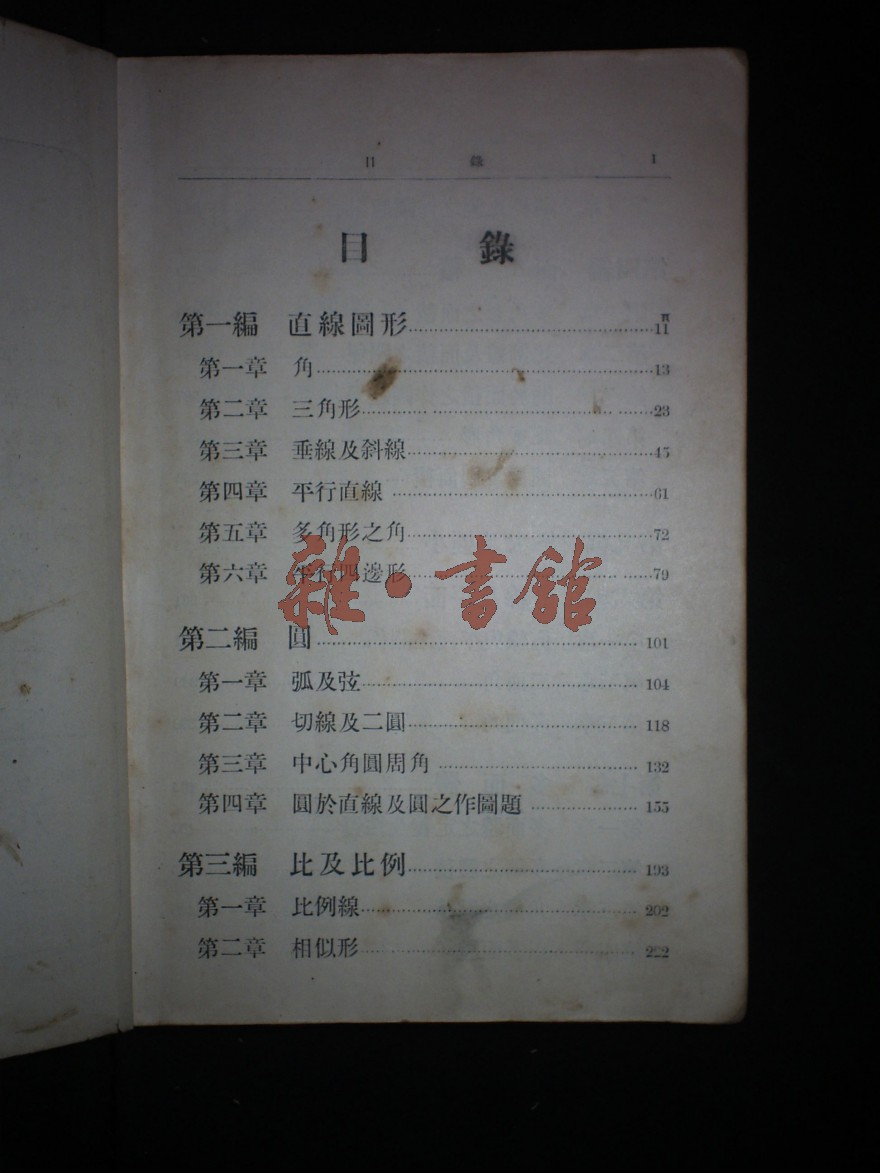 目 錄 1
目 錄
第一編 直線圖形……11
第一章 角……13
第二章 三角形……23
第三章 垂線及斜線……45
第四章 平行直線……61
第五章 多角形之角……72
第六章 平行四邊形……79
雜·書館
第二編 圓……101
第一章 弧及弦……104
第二章 切線及二圓……118
第三章 中心角圓周角……132
第四章 圓於直線及圓之作圖題……155
第三編 比及比例……193
第一章 比例線……202
第二章 相似形……222